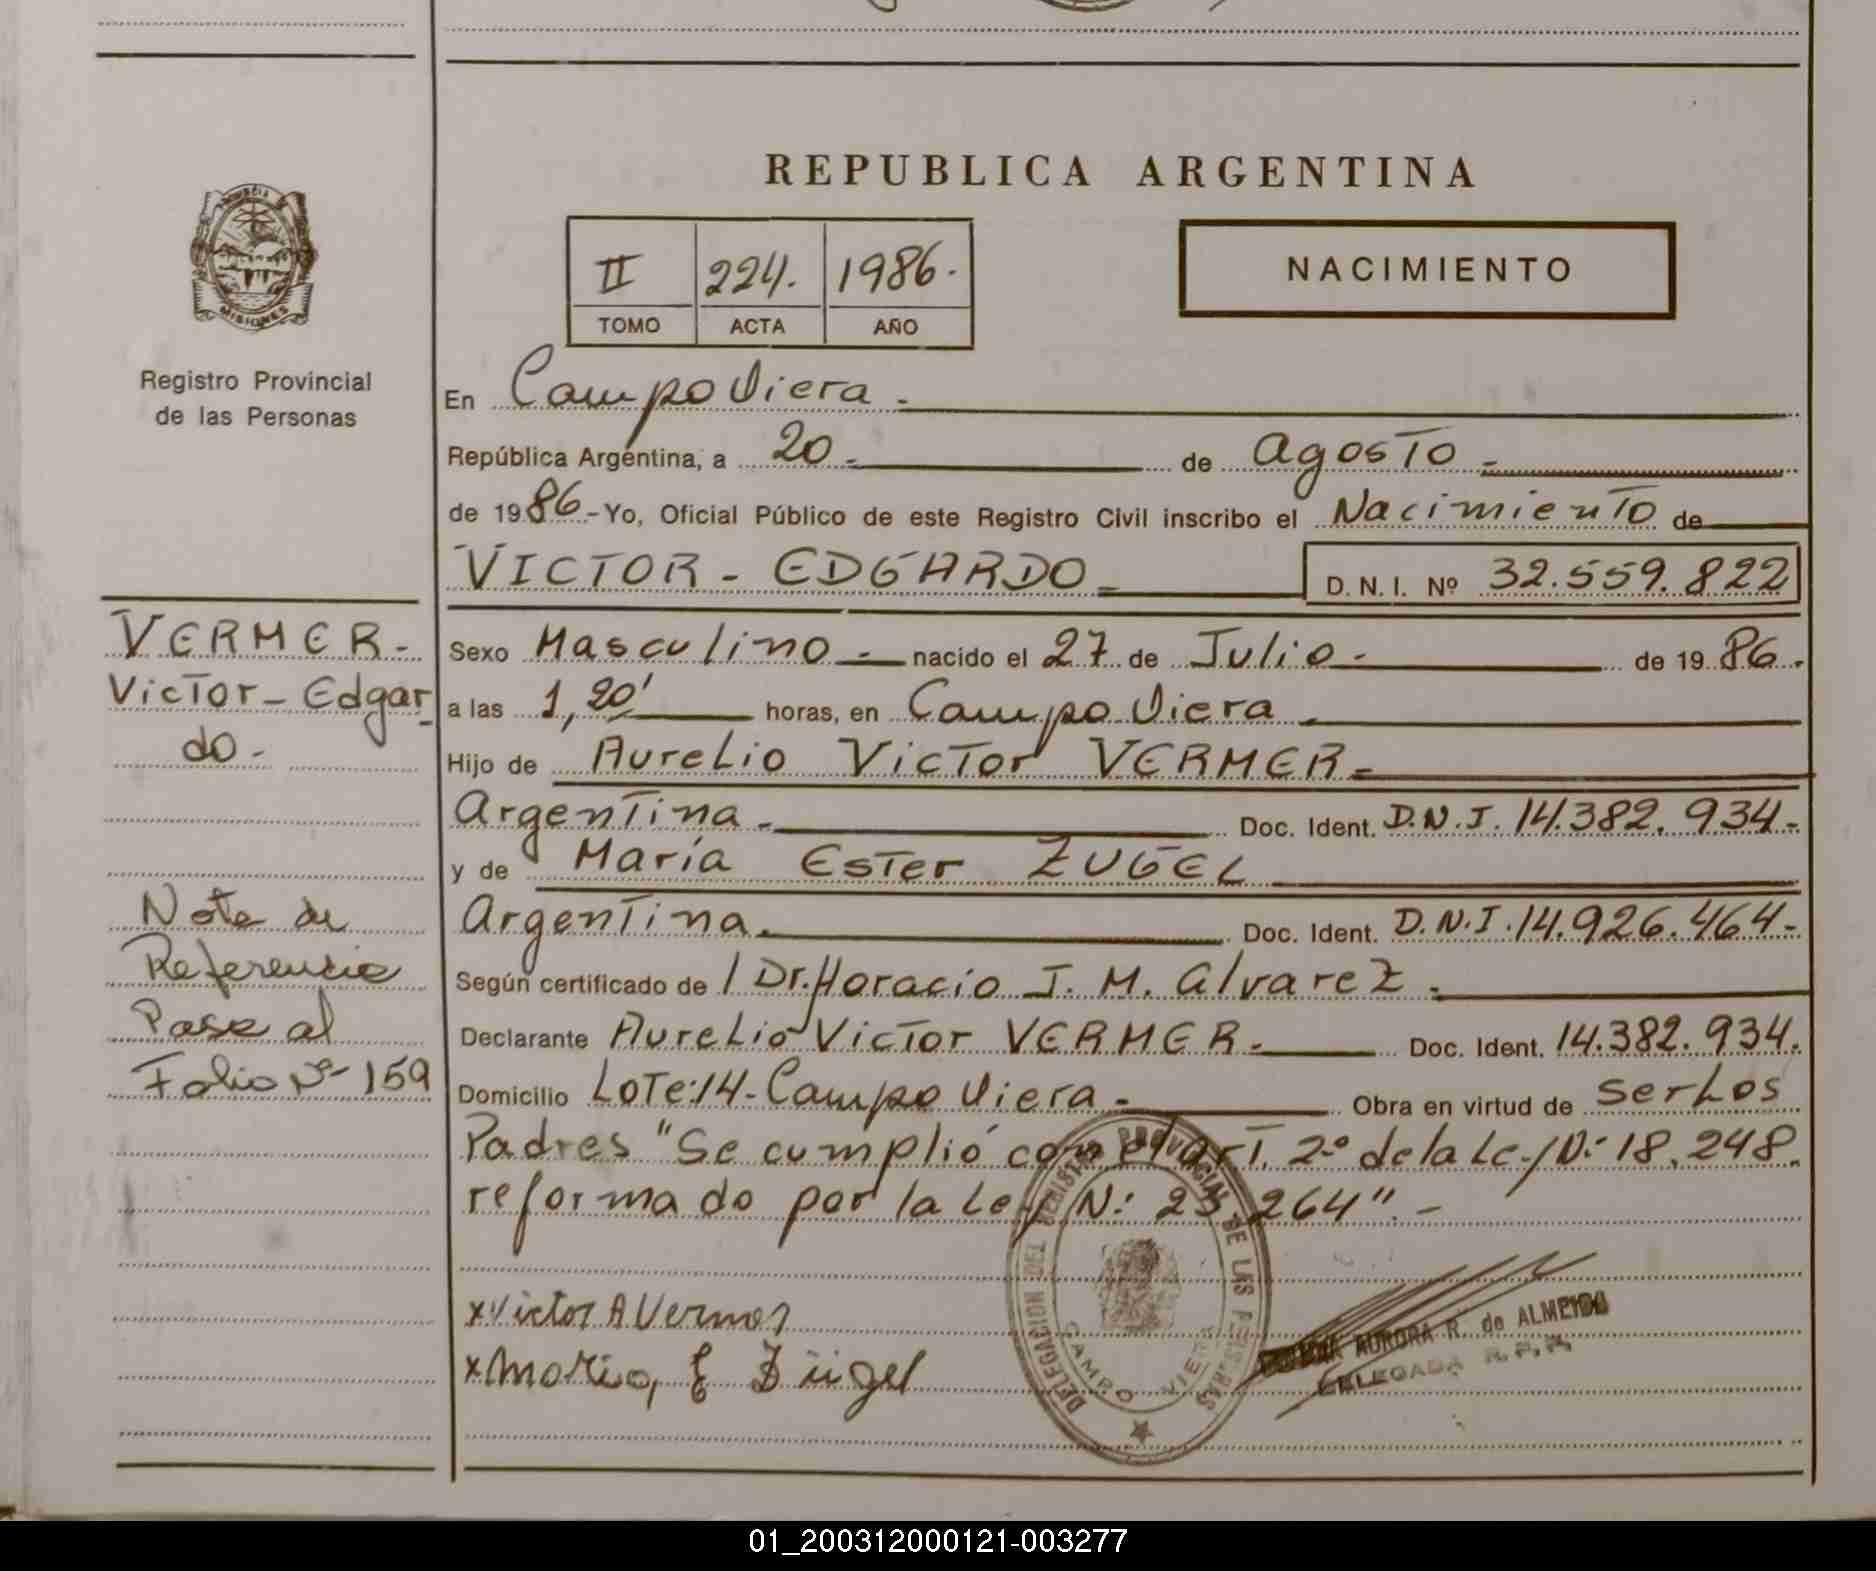 PROVINCIA DE
MISIONES
Registro Provincial
de las Personas
VERMER-
Victor-Edgar
do-
Nota de
Referencia
Pase al
Folio Nº 159
REPUBLICA ARGENTINA
II 224. 1986.
TOMO ACTA AÑO
NACIMIENTO
En Campo Viera.
República Argentina, a 20- de Agosto-
de 1986-Yo, Oficial Público de este Registro Civil inscribo el Nacimiento de
VICTOR-EDGARDO- D. N. I. Nº 32.559.822
Sexo Masculino- nacido el 27 de Julio- de 1986.
a las 1,20' horas, en Campo Viera
Hijo de Aurelio Victor VERMER-
Argentina- Doc. Ident. D.N.I. 14.382.934-
y de María Ester ZUGEL
Argentina. Doc. Ident. D.N.I. 14.926.464-
Según certificado de / Dr. Horacio J. M. Alvarez.
Declarante Aurelio Victor VERMER- Doc. Ident. 14.382.934.
Domicilio Lote:14-Campo Viera- Obra en virtud de ser Los
Padres "Se cumplió con el art. 2º de la Ley N: 18.248.
reformado por la Ley N: 23.264".-
DELEGACION DEL REGISTRO PROVINCIAL DE LAS PERSONAS
CAMPO VIERA
xVictor A Vermer
xMaria, E Zügel
AURORA R. de ALMEIDA
DELEGADA R.P.P.
01_200312000121-003277